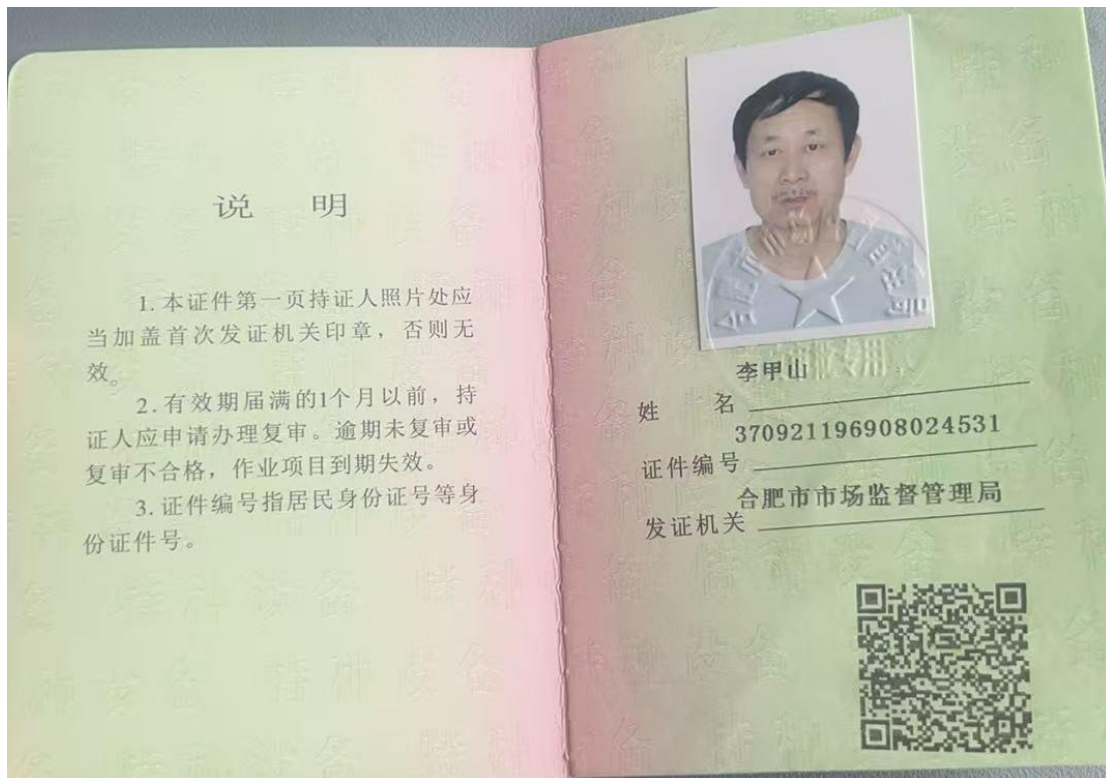 说 明
1.本证件第一页持证人照片处应
当加盖首次发证机关印章，否则无
效。
2.有效期届满的1个月以前，持
证人应申请办理复审。逾期未复审或
复审不合格，作业项目到期失效。
3.证件编号指居民身份证号等身
份证件号。
李甲山
姓 名
370921196908024531
证件编号
合肥市市场监督管理局
发证机关